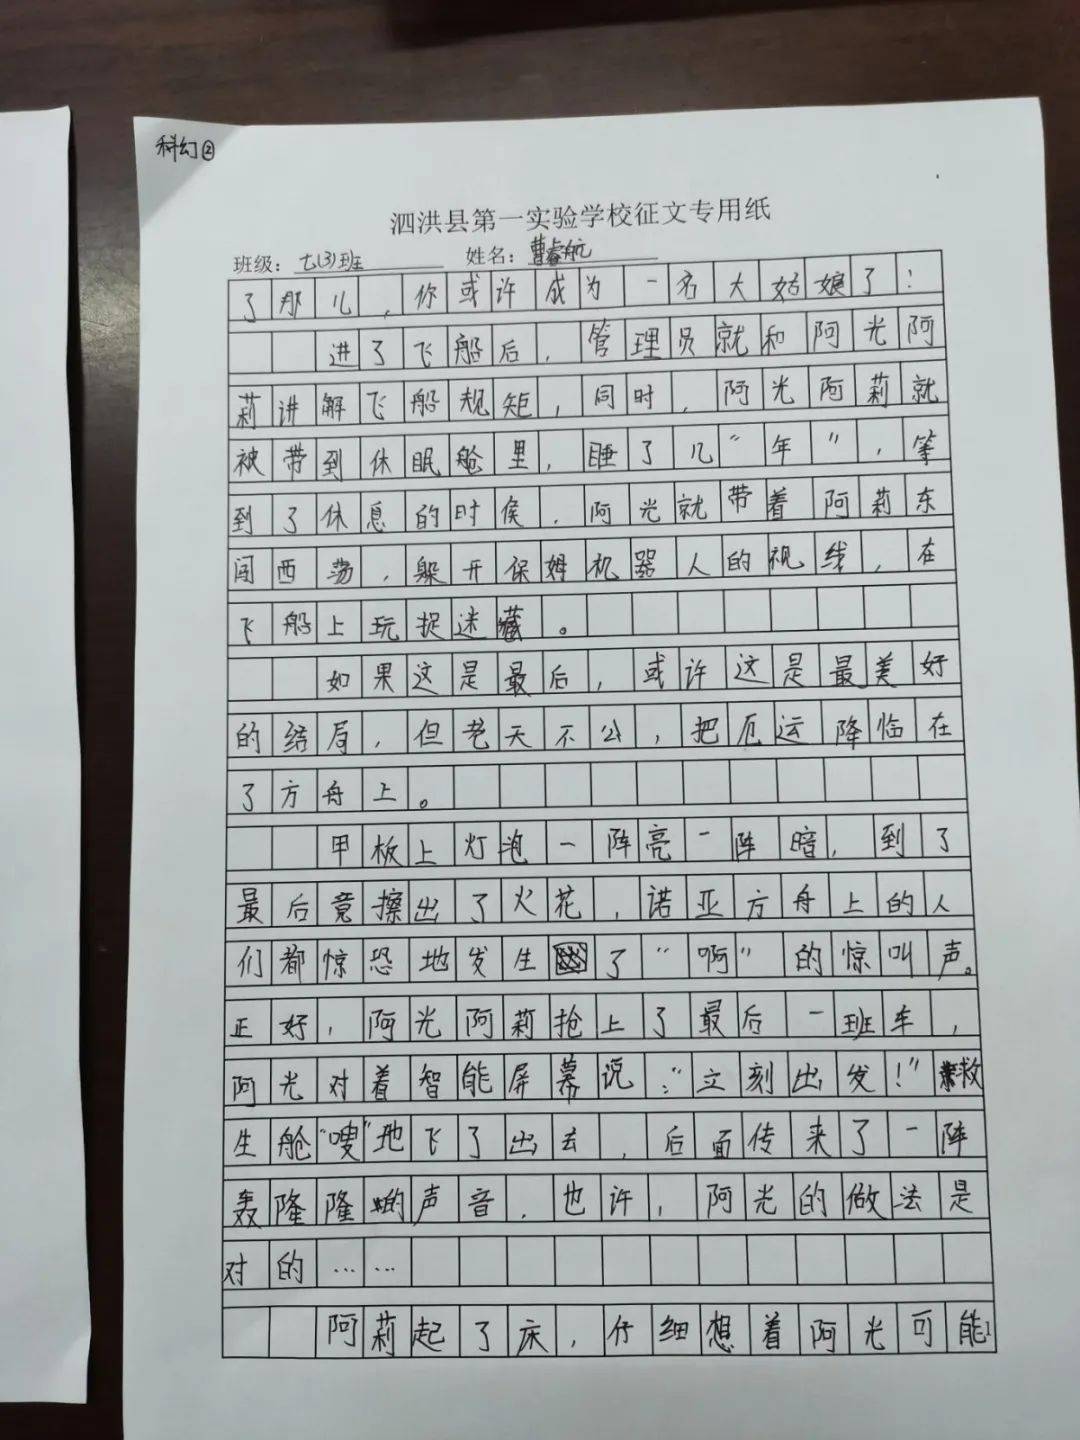 科幻②
泗洪县第一实验学校征文专用纸
班级：七(3)班 姓名：曹睿航
了那儿，你或许成为一名大姑娘了！
进了飞船后，管理员就和阿光阿
莉讲解飞船规矩，同时，阿光阿莉就
被带到休眠舱里，睡了几“年”，等
到了休息的时侯，阿光就带着阿莉东
闯西荡，躲开保姆机器人的视线，在
飞船上玩捉迷藏。
如果这是最后，或许这是最美好
的结局，但老天不公，把厄运降临在
了方舟上。
甲板上灯泡一阵亮一阵暗，到了
最后竟擦出了火花，诺亚方舟上的人
们都惊恐地发生了“啊”的惊叫声。
正好，阿光阿莉抢上了最后一班车，
阿光对着智能屏幕说：“立刻出发！”救
生舱“嗖”地飞了出去，后面传来了一阵
轰隆隆的声音，也许，阿光的做法是
对的……
阿莉起了床，仔细想着阿光可能